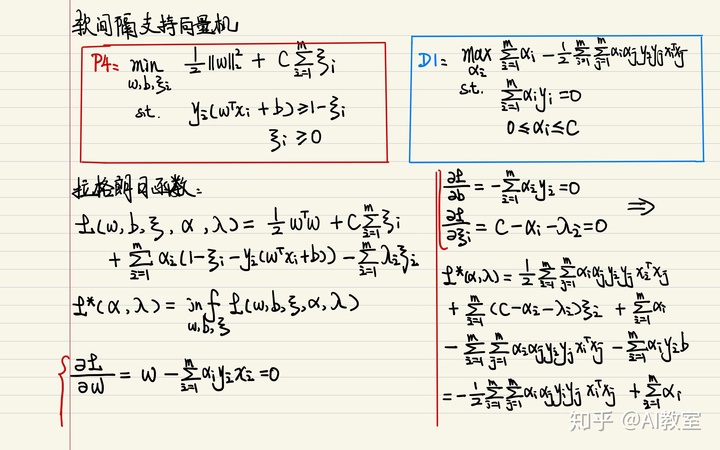 软间隔支持向量机
P4: min_{w,b,ξ_i} 1/2 ||w||_2^2 + C Σ_{i=1}^m ξ_i
s.t. y_i(w^T x_i + b) ≥ 1-ξ_i
ξ_i ≥ 0
D1: max_{α_i} Σ_{i=1}^m α_i - 1/2 Σ_{i=1}^m Σ_{j=1}^m α_i α_j y_i y_j x_i^T x_j
s.t. Σ_{i=1}^m α_i y_i = 0
0 ≤ α_i ≤ C
拉格朗日函数:
L(w,b,ξ,α,λ) = 1/2 w^T w + C Σ_{i=1}^m ξ_i
+ Σ_{i=1}^m α_i(1-ξ_i-y_i(w^T x_i+b)) - Σ_{i=1}^m λ_i ξ_i
L*(α,λ) = inf_{w,b,ξ} L(w,b,ξ,α,λ)
∂L/∂w = w - Σ_{i=1}^m α_i y_i x_i = 0
∂L/∂b = -Σ_{i=1}^m α_i y_i = 0 ⇒
∂L/∂ξ_i = C - α_i - λ_i = 0
L*(α,λ) = 1/2 Σ_{i=1}^m Σ_{j=1}^m α_i α_j y_i y_j x_i^T x_j
+ Σ_{i=1}^m (C-α_i-λ_i)ξ_i + Σ_{i=1}^m α_i
- Σ_{i=1}^m Σ_{j=1}^m α_i α_j y_i y_j x_i^T x_j - Σ_{i=1}^m α_i y_i b
= -1/2 Σ_{i=1}^m Σ_{j=1}^m α_i α_j y_i y_j x_i^T x_j + Σ_{i=1}^m α_i
知乎 @AI教室